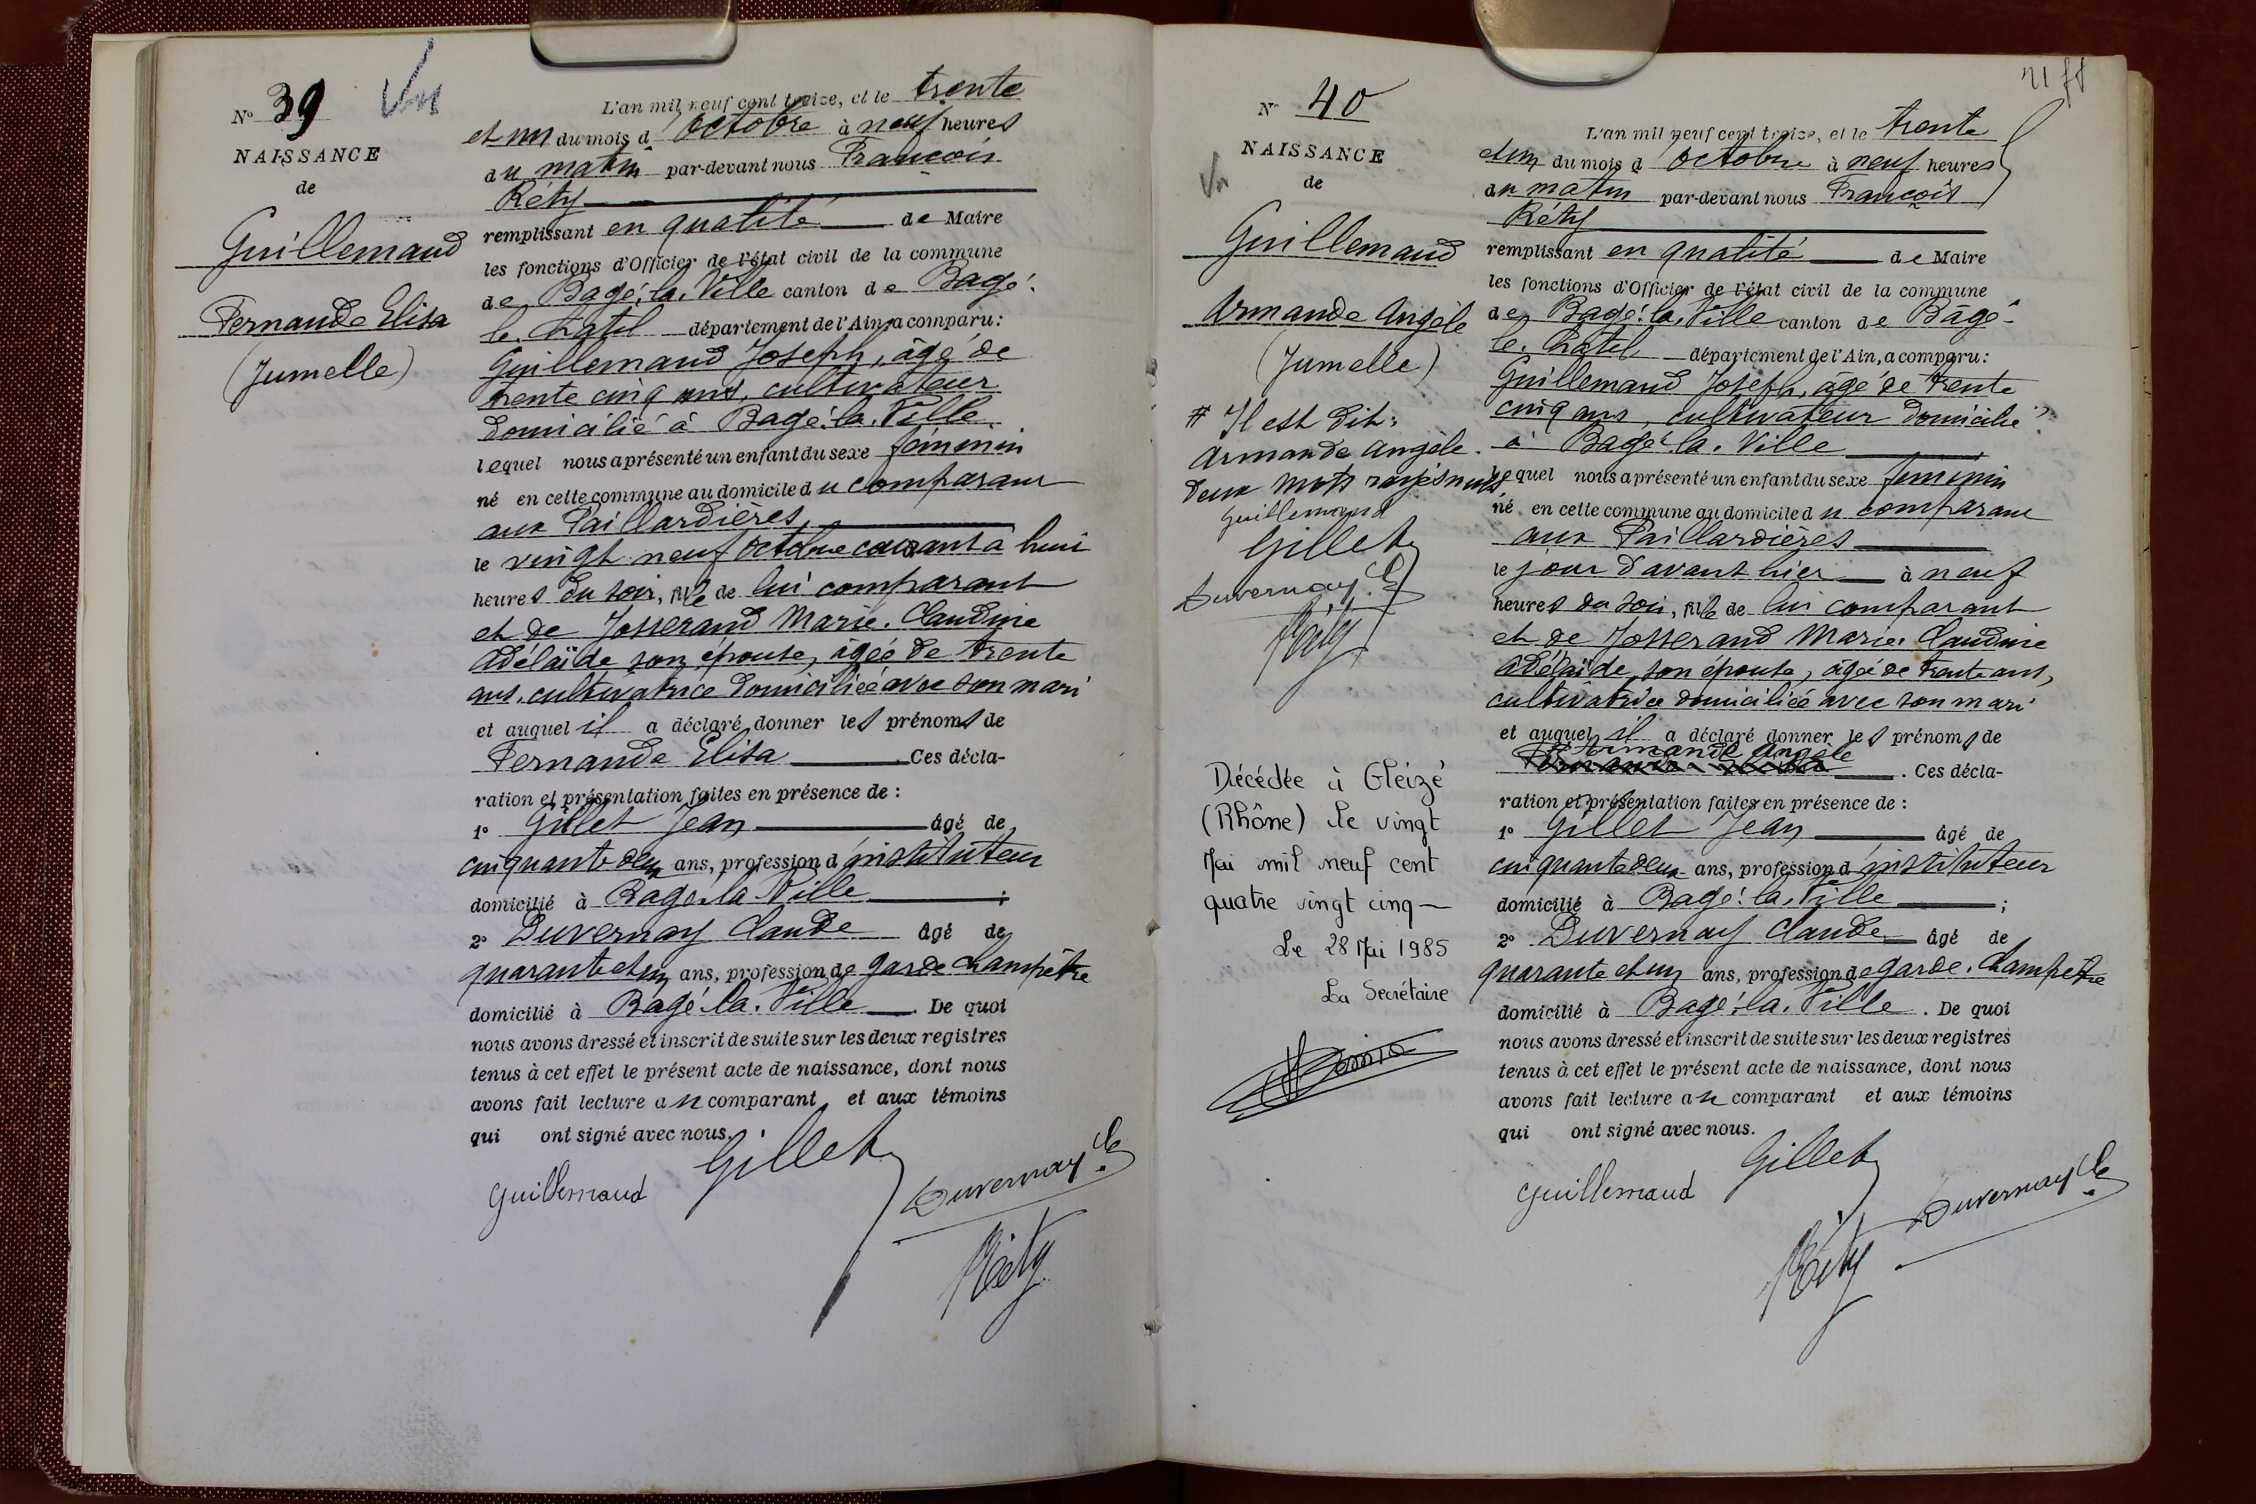 N° 39
NAISSANCE
de
Guillemaud
Fernande Elisa
(Jumelle)
L'an mil neuf cent treize, et le trente
et un du mois d'octobre à neuf heures
du matin par-devant nous François
Réty
remplissant en qualité de Maire
les fonctions d'Officier de l'état civil de la commune
de Bagé-la-Ville canton de Bagé-
le-Chatel département de l'Ain, a comparu:
Guillemaud Joseph, âgé de
trente cinq ans, cultivateur
domicilié à Bagé-la-Ville
lequel nous a présenté un enfant du sexe féminin
né en cette commune au domicile du comparant
aux Paillardières,
le vingt neuf octobre courant à huit
heures du soir, fille de lui comparant
et de Josserand Marie-Claudine
Adélaïde son épouse, âgée de trente
ans, cultivatrice domiciliée avec son mari
et auquel il a déclaré donner les prénoms de
Fernande Elisa. Ces décla-
ration et présentation faites en présence de :
1° Gillet Jean âgé de
cinquante deux ans, profession d'instituteur
domicilié à Bagé-la-Ville ;
2° Duvernay Claude âgé de
quarante et un ans, profession de garde champêtre
domicilié à Bagé-la-Ville. De quoi
nous avons dressé et inscrit de suite sur les deux registres
tenus à cet effet le présent acte de naissance, dont nous
avons fait lecture au comparant et aux témoins
qui ont signé avec nous.
Guillemaud Gillet Duvernay Cde
Réty
N° 40
NAISSANCE
de
Guillemaud
Armande Angèle
(Jumelle)
# Il est dit:
Armande Angèle.
deux mots rayés nuls
Guillemaud
Gillet
Duvernay Cde
Réty
Décédée à Gleizé
(Rhône) le vingt
Mai mil neuf cent
quatre vingt cinq
Le 28 Mai 1985
La Secrétaire
L'an mil neuf cent treize, et le trente
et un du mois d'octobre à neuf heures
du matin par-devant nous François
Réty
remplissant en qualité de Maire
les fonctions d'Officier de l'état civil de la commune
de Bagé-la-Ville canton de Bâgé-
le-Chatel département de l'Ain, a comparu:
Guillemaud Joseph, âgé de trente
cinq ans, cultivateur domicilié
à Bagé-la-Ville
lequel nous a présenté un enfant du sexe féminin
né en cette commune au domicile du comparant
aux Paillardières
le jour d'avant hier à neuf
heures du soir, fille de lui comparant
et de Josserand Marie-Claudine
Adélaïde, son épouse, âgée de trente ans,
cultivatrice domiciliée avec son mari
et auquel il a déclaré donner les prénoms de
Armande Angèle
. Ces décla-
ration et présentation faites en présence de :
1° Gillet Jean âgé de
cinquante deux ans, profession d'instituteur
domicilié à Bagé-la-Ville ;
2° Duvernay Claude âgé de
quarante et un ans, profession de garde-champêtre
domicilié à Bagé-la-Ville. De quoi
nous avons dressé et inscrit de suite sur les deux registres
tenus à cet effet le présent acte de naissance, dont nous
avons fait lecture au comparant et aux témoins
qui ont signé avec nous.
Guillemaud Gillet Duvernay Cde
Réty